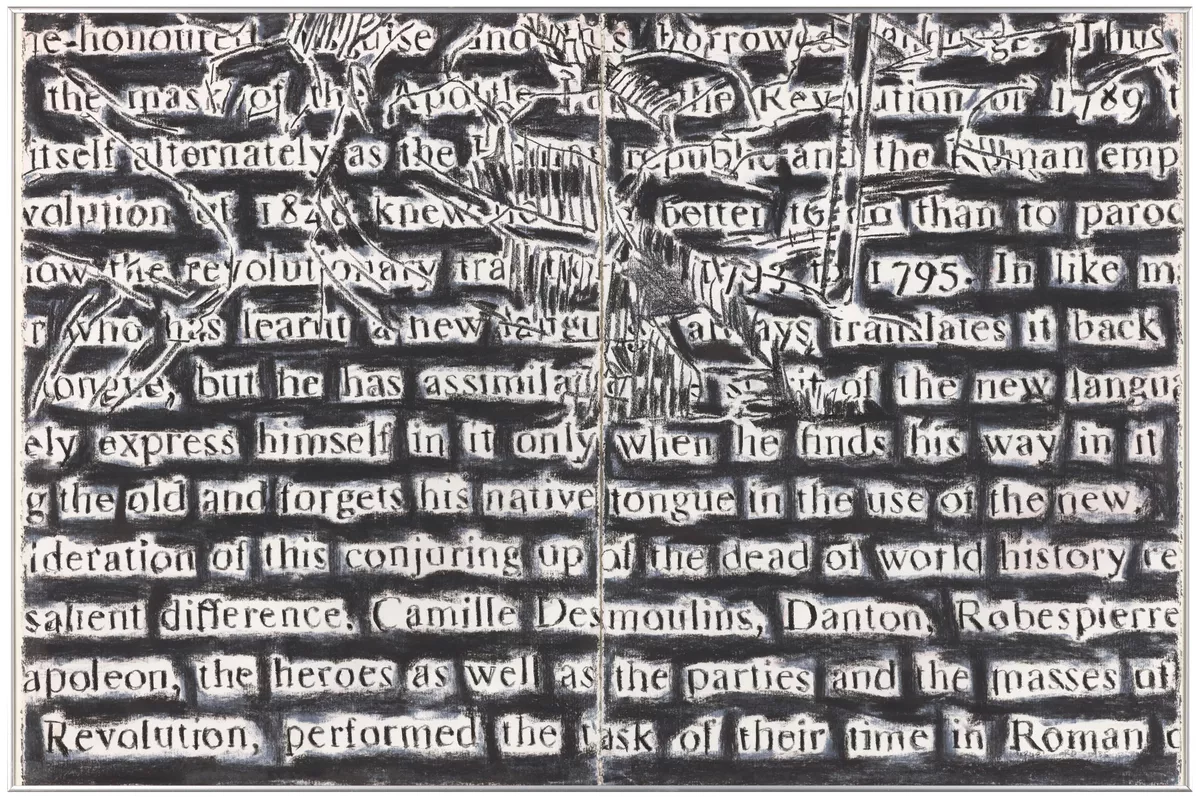 e-honoured guise and this borrowed language. Thus
the mask of the Apostle Paul the Revolution of 1789 t
itself alternately as the republic and the Roman emp
volution of 1848 knew no better to do than to paroc
ow the revolutionary tra 1793 to 1795. In like m
r who has learnt a new langu always translates it back
tongue, but he has assimilated the spirit of the new langua
ely express himself in it only when he finds his way in it
g the old and forgets his native tongue in the use of the new.
ideration of this conjuring up of the dead of world history re
salient difference. Camille Desmoulins, Danton, Robespierre
apoleon, the heroes as well as the parties and the masses of
Revolution, performed the task of their time in Roman c